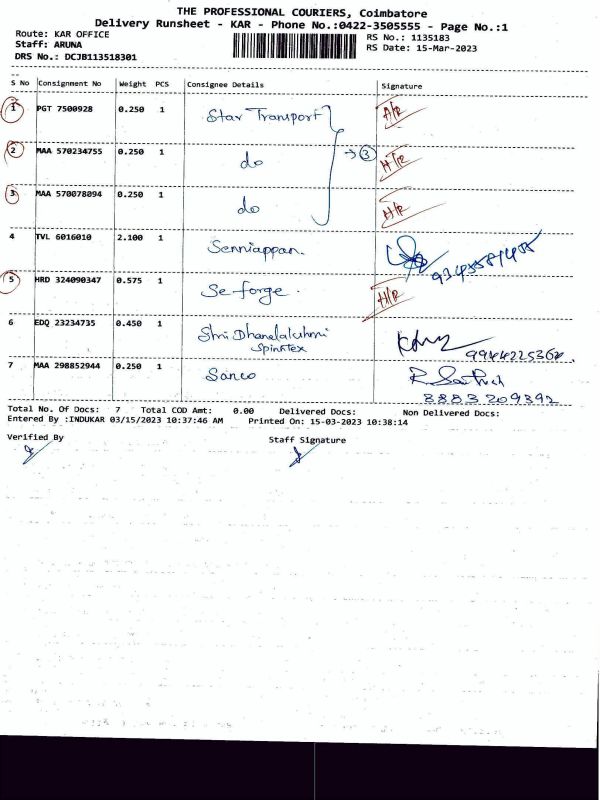 THE PROFESSIONAL COURIERS, Coimbatore
Delivery Runsheet - KAR - Phone No.:0422-3505555 - Page No.:1
Route: KAR OFFICE RS No.: 1135183
Staff: ARUNA RS Date: 15-Mar-2023
DRS No.: DCJB113518301
S No Consignment No Weight PCS Consignee Details Signature
1 PGT 7500928 0.250 1 Star Transport
2 MAA 570234755 0.250 1 do → 3 H/R
3 MAA 570078094 0.250 1 do H/R
4 TVL 6016010 2.100 1 Senniappan.
5 HRD 324090347 0.575 1 Se forge. H/R
6 EDQ 23234735 0.450 1 Shri Dhanalakshmi
Spinntex 9944225362
7 MAA 298852944 0.250 1 Sanco
8883209392
Total No. Of Docs: 7 Total COD Amt: 0.00 Delivered Docs: Non Delivered Docs:
Entered By :INDUKAR 03/15/2023 10:37:46 AM Printed On: 15-03-2023 10:38:14
Verified By Staff Signature